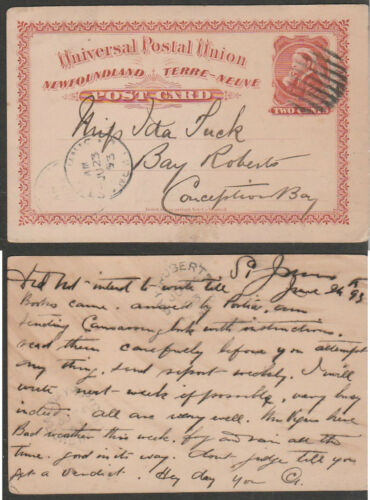 Universal Postal Union
NEWFOUNDLAND TERRE-NEUVE
POST CARD
TWO CENTS
AM
JU 23
93
Miss Ida Tuck
Bay Roberts
Conception Bay
ROBERTS
St Johns
June 93
Did not intend to write till
Books came. arrived by am
sending with instructions.
read them carefully before you attempt
any thing, send report weekly. I will
write next week if possible, very busy
indeed. all are very well.
Bad weather this week, fog and rain all the
time. good in its way. Dont judge till you
get a verdict. Hey day you